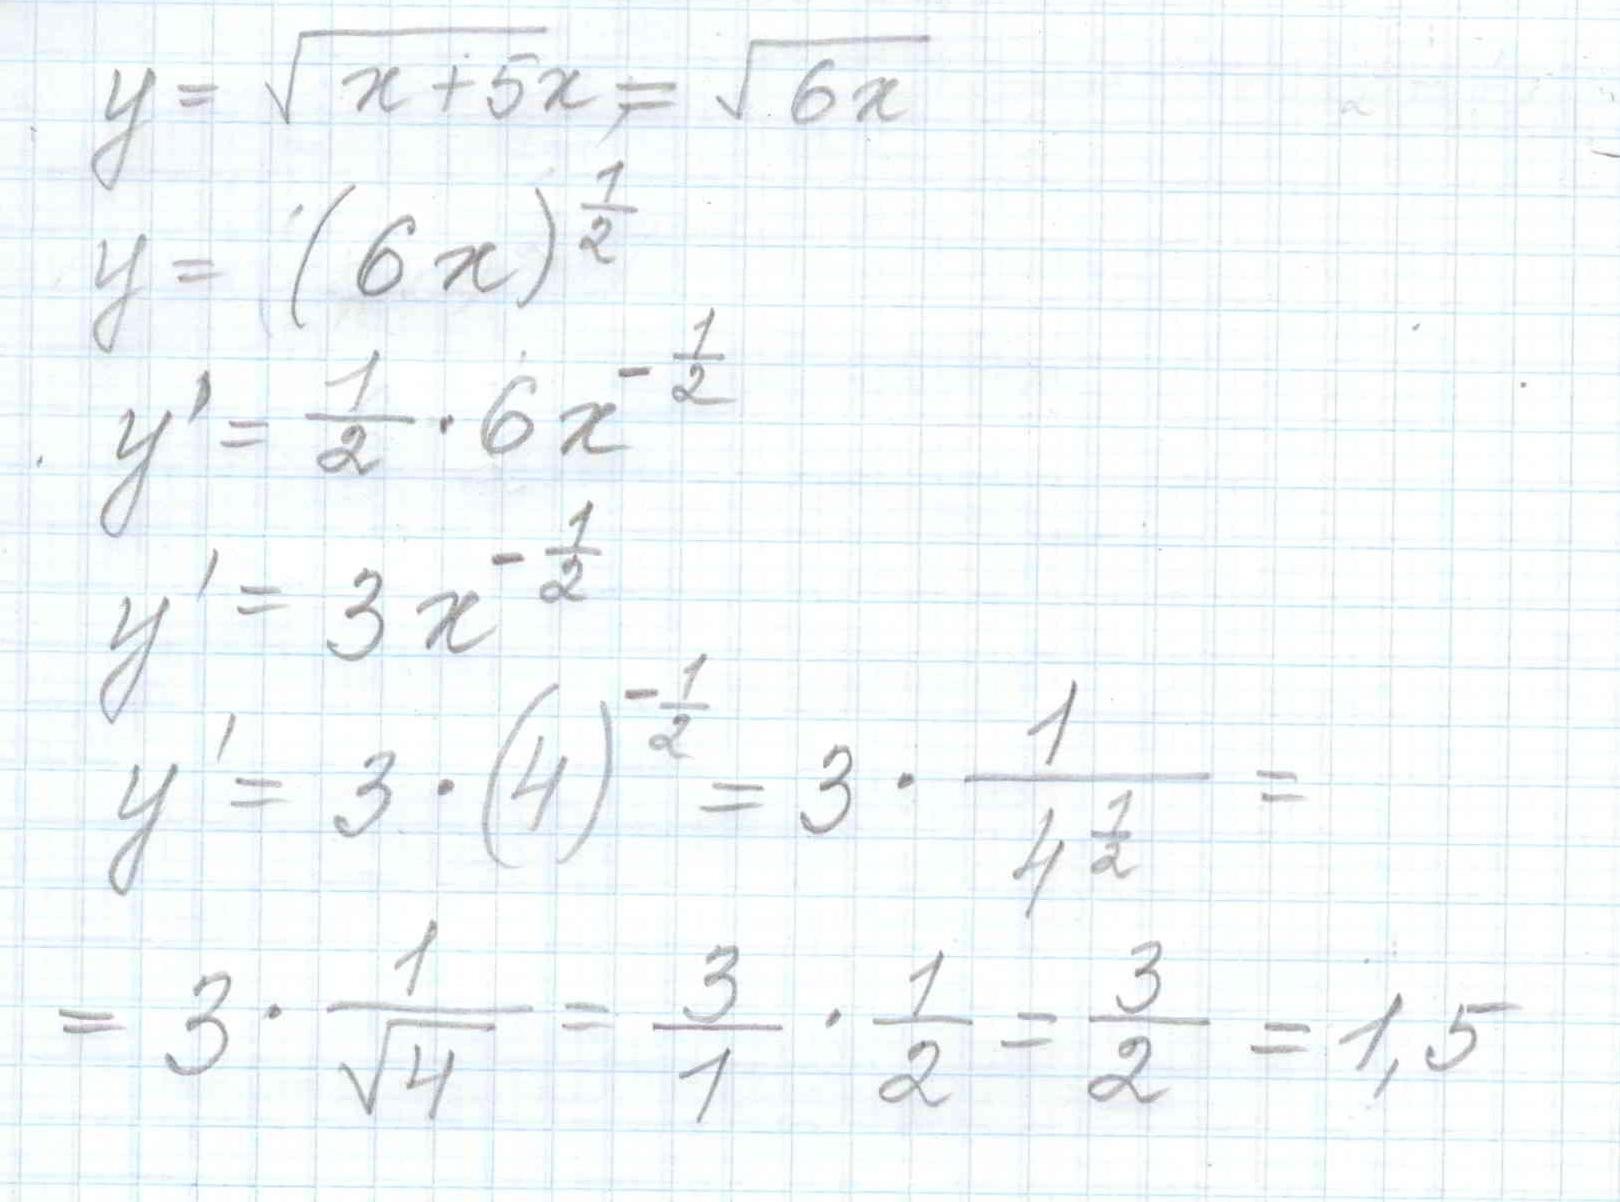 y = √(x+5x) = √(6x)
y = (6x)^(1/2)
y' = 1/2 · 6x^(-1/2)
y' = 3x^(-1/2)
y' = 3 · (4)^(-1/2) = 3 · 1/4^(1/2) =
= 3 · 1/√4 = 3/1 · 1/2 = 3/2 = 1,5